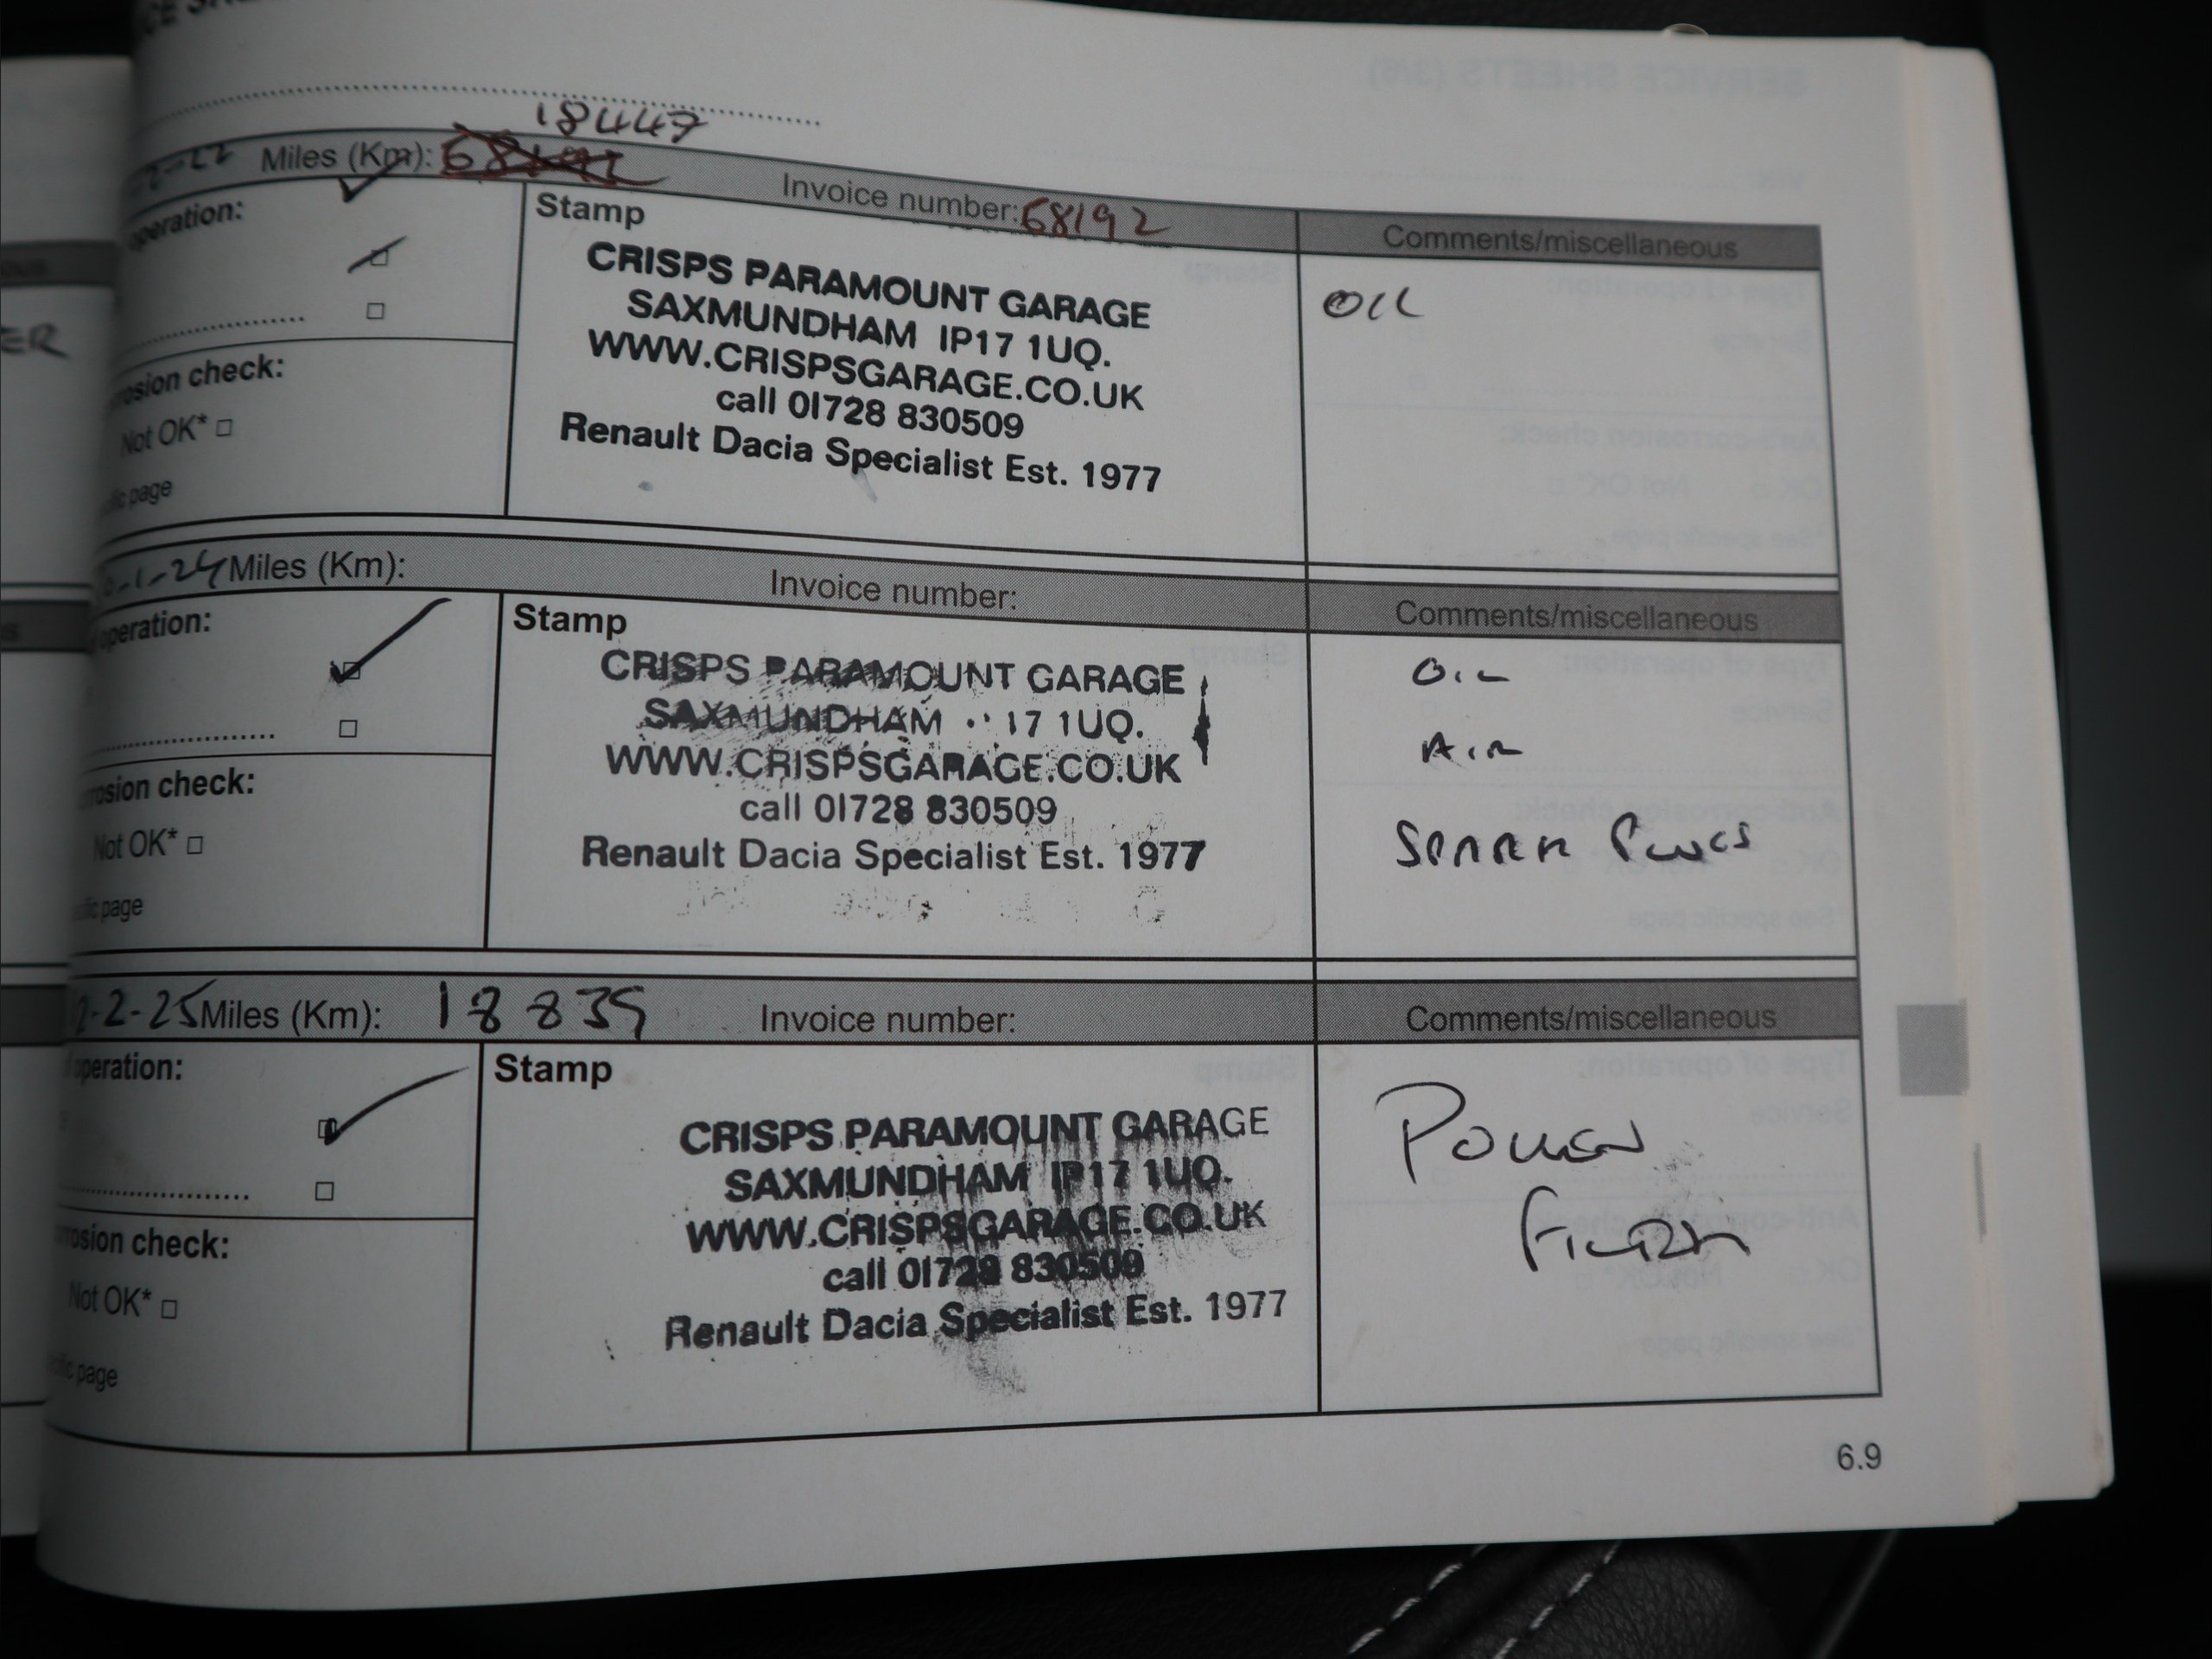 18447
Miles (Km): 68192 Invoice number: 68192
operation:
Stamp
Comments/miscellaneous
CRISPS PARAMOUNT GARAGE
SAXMUNDHAM IP17 1UQ.
WWW.CRISPSGARAGE.CO.UK
call 01728 830509
Renault Dacia Specialist Est. 1977
OIL
ER
rosion check:
Not OK*
page
-1-24 Miles (Km): Invoice number:
operation:
Stamp
Comments/miscellaneous
CRISPS PARAMOUNT GARAGE
SAXMUNDHAM 17 1UQ.
WWW.CRISPSGARAGE.CO.UK
call 01728 830509
Renault Dacia Specialist Est. 1977
OIL
AIR
SPARK PLUGS
rosion check:
Not OK*
page
2-2-25 Miles (Km): 18839 Invoice number:
operation:
Stamp
Comments/miscellaneous
CRISPS PARAMOUNT GARAGE
SAXMUNDHAM IP17 1UQ.
WWW.CRISPSGARAGE.CO.UK
call 01728 830509
Renault Dacia Specialist Est. 1977
POLLEN
FILTER
rosion check:
Not OK*
page
6.9